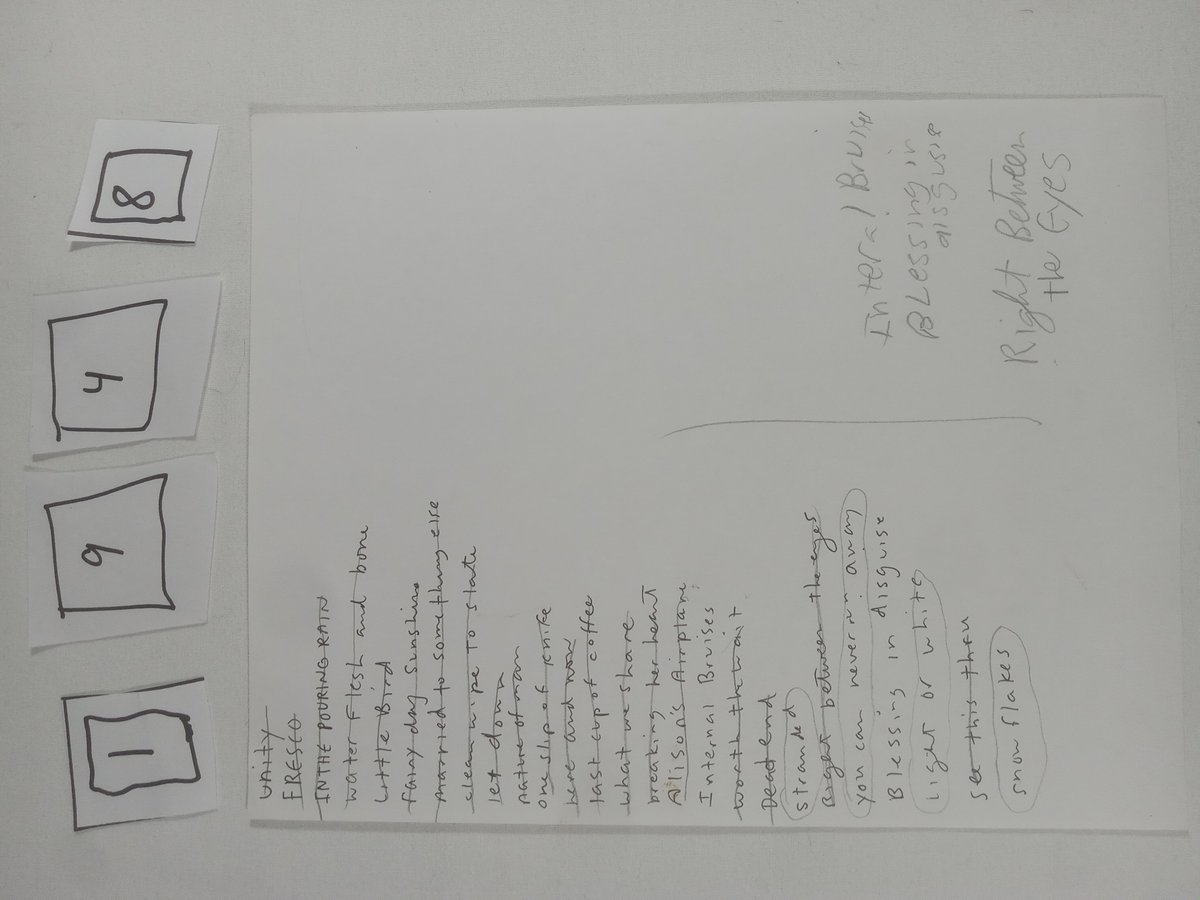 1
9
4
8
UNITY
FRESCO
IN THE POURING RAIN
water flesh and bone
Little Bird
rainy day sunshine
married to something else
clean wipe to slate
let down
nature of man
one slip of knife
here and now
last cup of coffee
what we share
breaking her heart
Alison's Airplane
Internal Bruises
worth the wait
Dead end
stranded
Right between the eyes
you can never run away
Blessing in disguise
Light or white
see this thru
snow flakes
Interal Bruise
BLessing in
disguise
Right Between
the Eyes